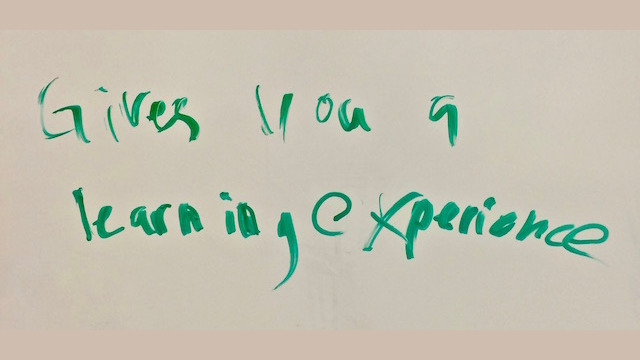 Gives you a
learning experience